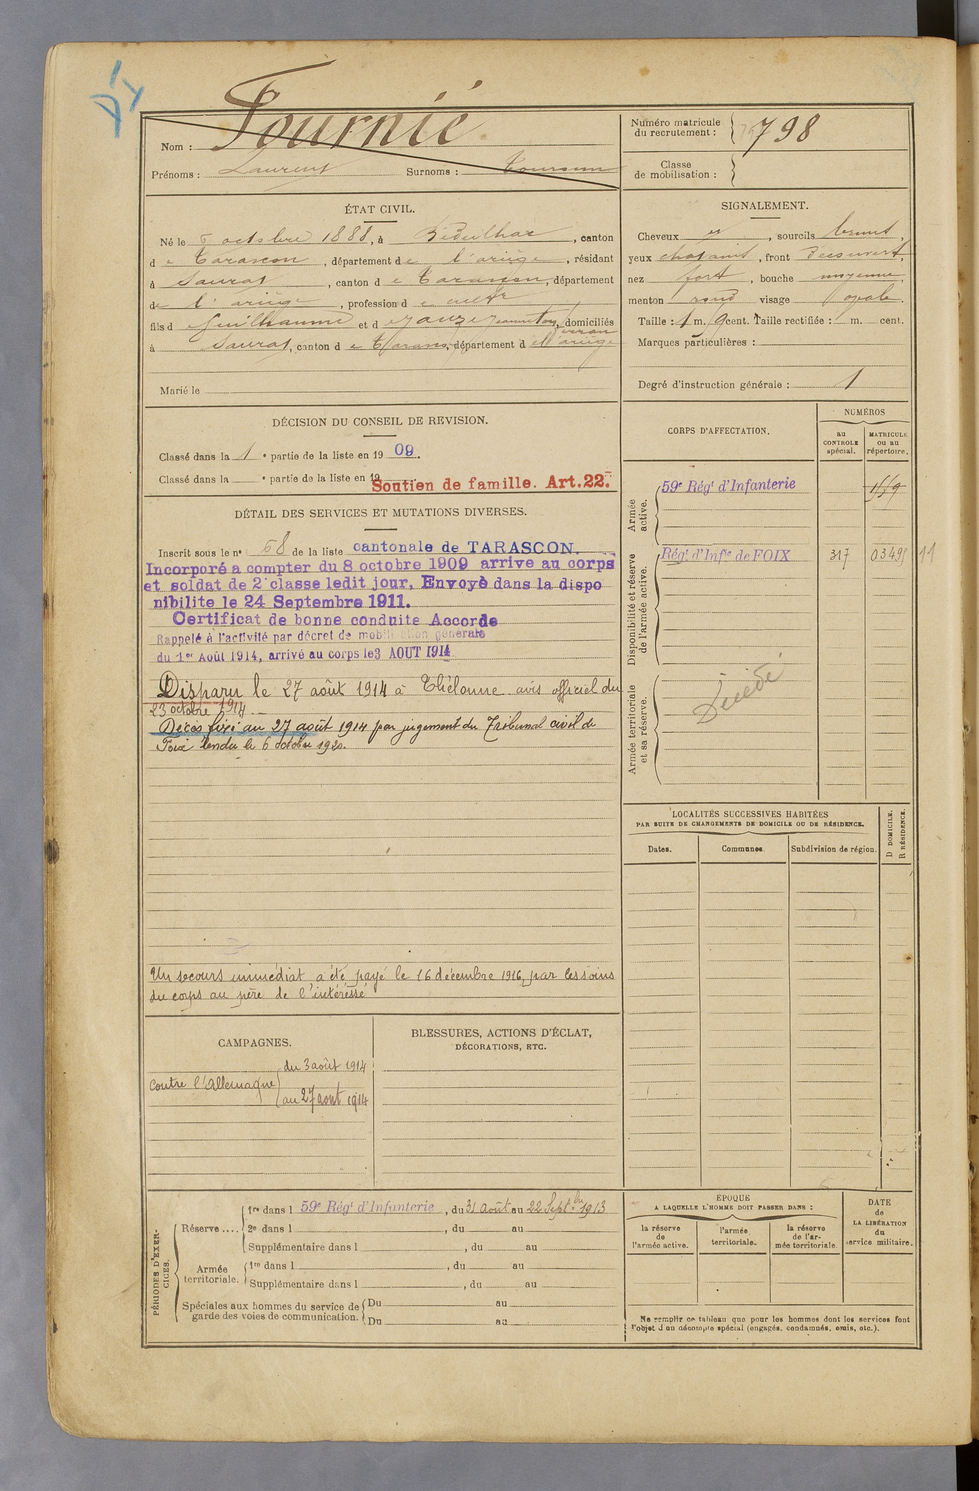 Nom : Fournié
Prénoms : Laurent Surnoms :
Numéro matricule
du recrutement : 798
Classe
de mobilisation :
ÉTAT CIVIL.
Né le 5 octobre 1888, à Bédeilhac, canton
d e Tarascon, département de l'ariège, résidant
à Saurat, canton d e Tarascon, département
de l'ariège, profession d e
fils d e Guilhaume et d e Jauze Jeanneton, domiciliés
à Saurat, canton d e Tarascon, département d e l'ariège
Marié le
SIGNALEMENT.
Cheveux , sourcils bruns,
yeux chatains, front découvert,
nez fort, bouche moyenne,
menton rond visage ovale.
Taille : 1 m. cent. Taille rectifiée : m. cent.
Marques particulières :
Degré d'instruction générale : 1
DÉCISION DU CONSEIL DE REVISION.
Classé dans la 1 e partie de la liste en 19 09.
Classé dans la e partie de la liste en 19
Soutien de famille. Art.22.
DÉTAIL DES SERVICES ET MUTATIONS DIVERSES.
Inscrit sous le n° 58 de la liste cantonale de TARASCON.
Incorporé a compter du 8 octobre 1909 arrive au corps
et soldat de 2e classe ledit jour. Envoyé dans la dispo
nibilite le 24 Septembre 1911.
Certificat de bonne conduite Accorde
Rappelé à l'activité par décret de mobilisation générale
du 1er Août 1914, arrivé au corps le 3 AOUT 1914
Disparu le 27 août 1914 à Thélonne avis officiel du
23 octobre 1914.
Décès fixé au 27 août 1914 par jugement du Tribunal civil de
Foix rendu le 6 octobre 1920.
Un secours immédiat a été payé le 16 décembre 1916, par les soins
du corps au père de l'intéressé
CORPS D'AFFECTATION.
NUMÉROS
au
CONTROLE
spécial.
MATRICULE
ou au
répertoire.
Armée
active.
59e Régt d'Infanterie
Disponibilité et réserve
de l'armée active.
Régt d'Infie de FOIX 317 03495 11
Armée territoriale
et sa réserve.
Décédé
LOCALITÉS SUCCESSIVES HABITÉES
PAR SUITE DE CHANGEMENTS DE DOMICILE OU DE RÉSIDENCE.
Dates. Communes. Subdivision de région.
D DOMICILE.
R RÉSIDENCE.
CAMPAGNES.
Contre l'Allemagne
du 3 août 1914
au 27 aout 1914
BLESSURES, ACTIONS D'ÉCLAT,
DÉCORATIONS, ETC.
PÉRIODES D'EXER-
CICES.
Réserve ....
1re dans l 59e Régt d'Infanterie, du 31 Août au 22 Septbre 1913
2e dans l , du au
Supplémentaire dans l , du au
Armée
territoriale.
1re dans l , du au
Supplémentaire dans l , du au
Spéciales aux hommes du service de
garde des voies de communication.
Du au
Du au
ÉPOQUE
A LAQUELLE L'HOMME DOIT PASSER DANS :
la réserve
de
l'armée active.
l'armée
territoriale.
la réserve
de l'ar-
mée territoriale.
DATE
de
LA LIBÉRATION
du
service militaire.
Ne remplir ce tableau que pour les hommes dont les services font
l'objet d'un décompte spécial (engagés, condamnés, omis, etc.).